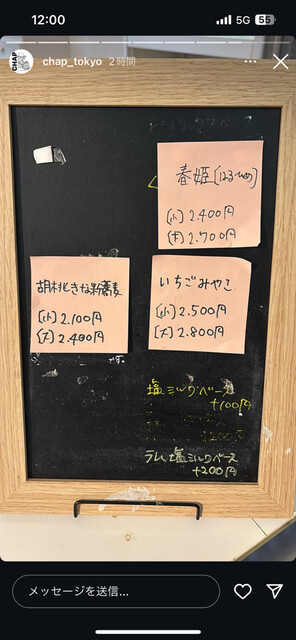 12:00
5G
55
CHAP
chap_tokyo 2時間
春姫〔はるひめ〕
〔小〕2.400円
〔大〕2.700円
胡桃ときな粉蕎麦
〔小〕2.100円
〔大〕2.400円
いちごみやこ
〔小〕2.500円
〔大〕2.800円
塩ミルクベース
+100円
+200円
ラム塩ミルクベース
+200円
メッセージを送信...